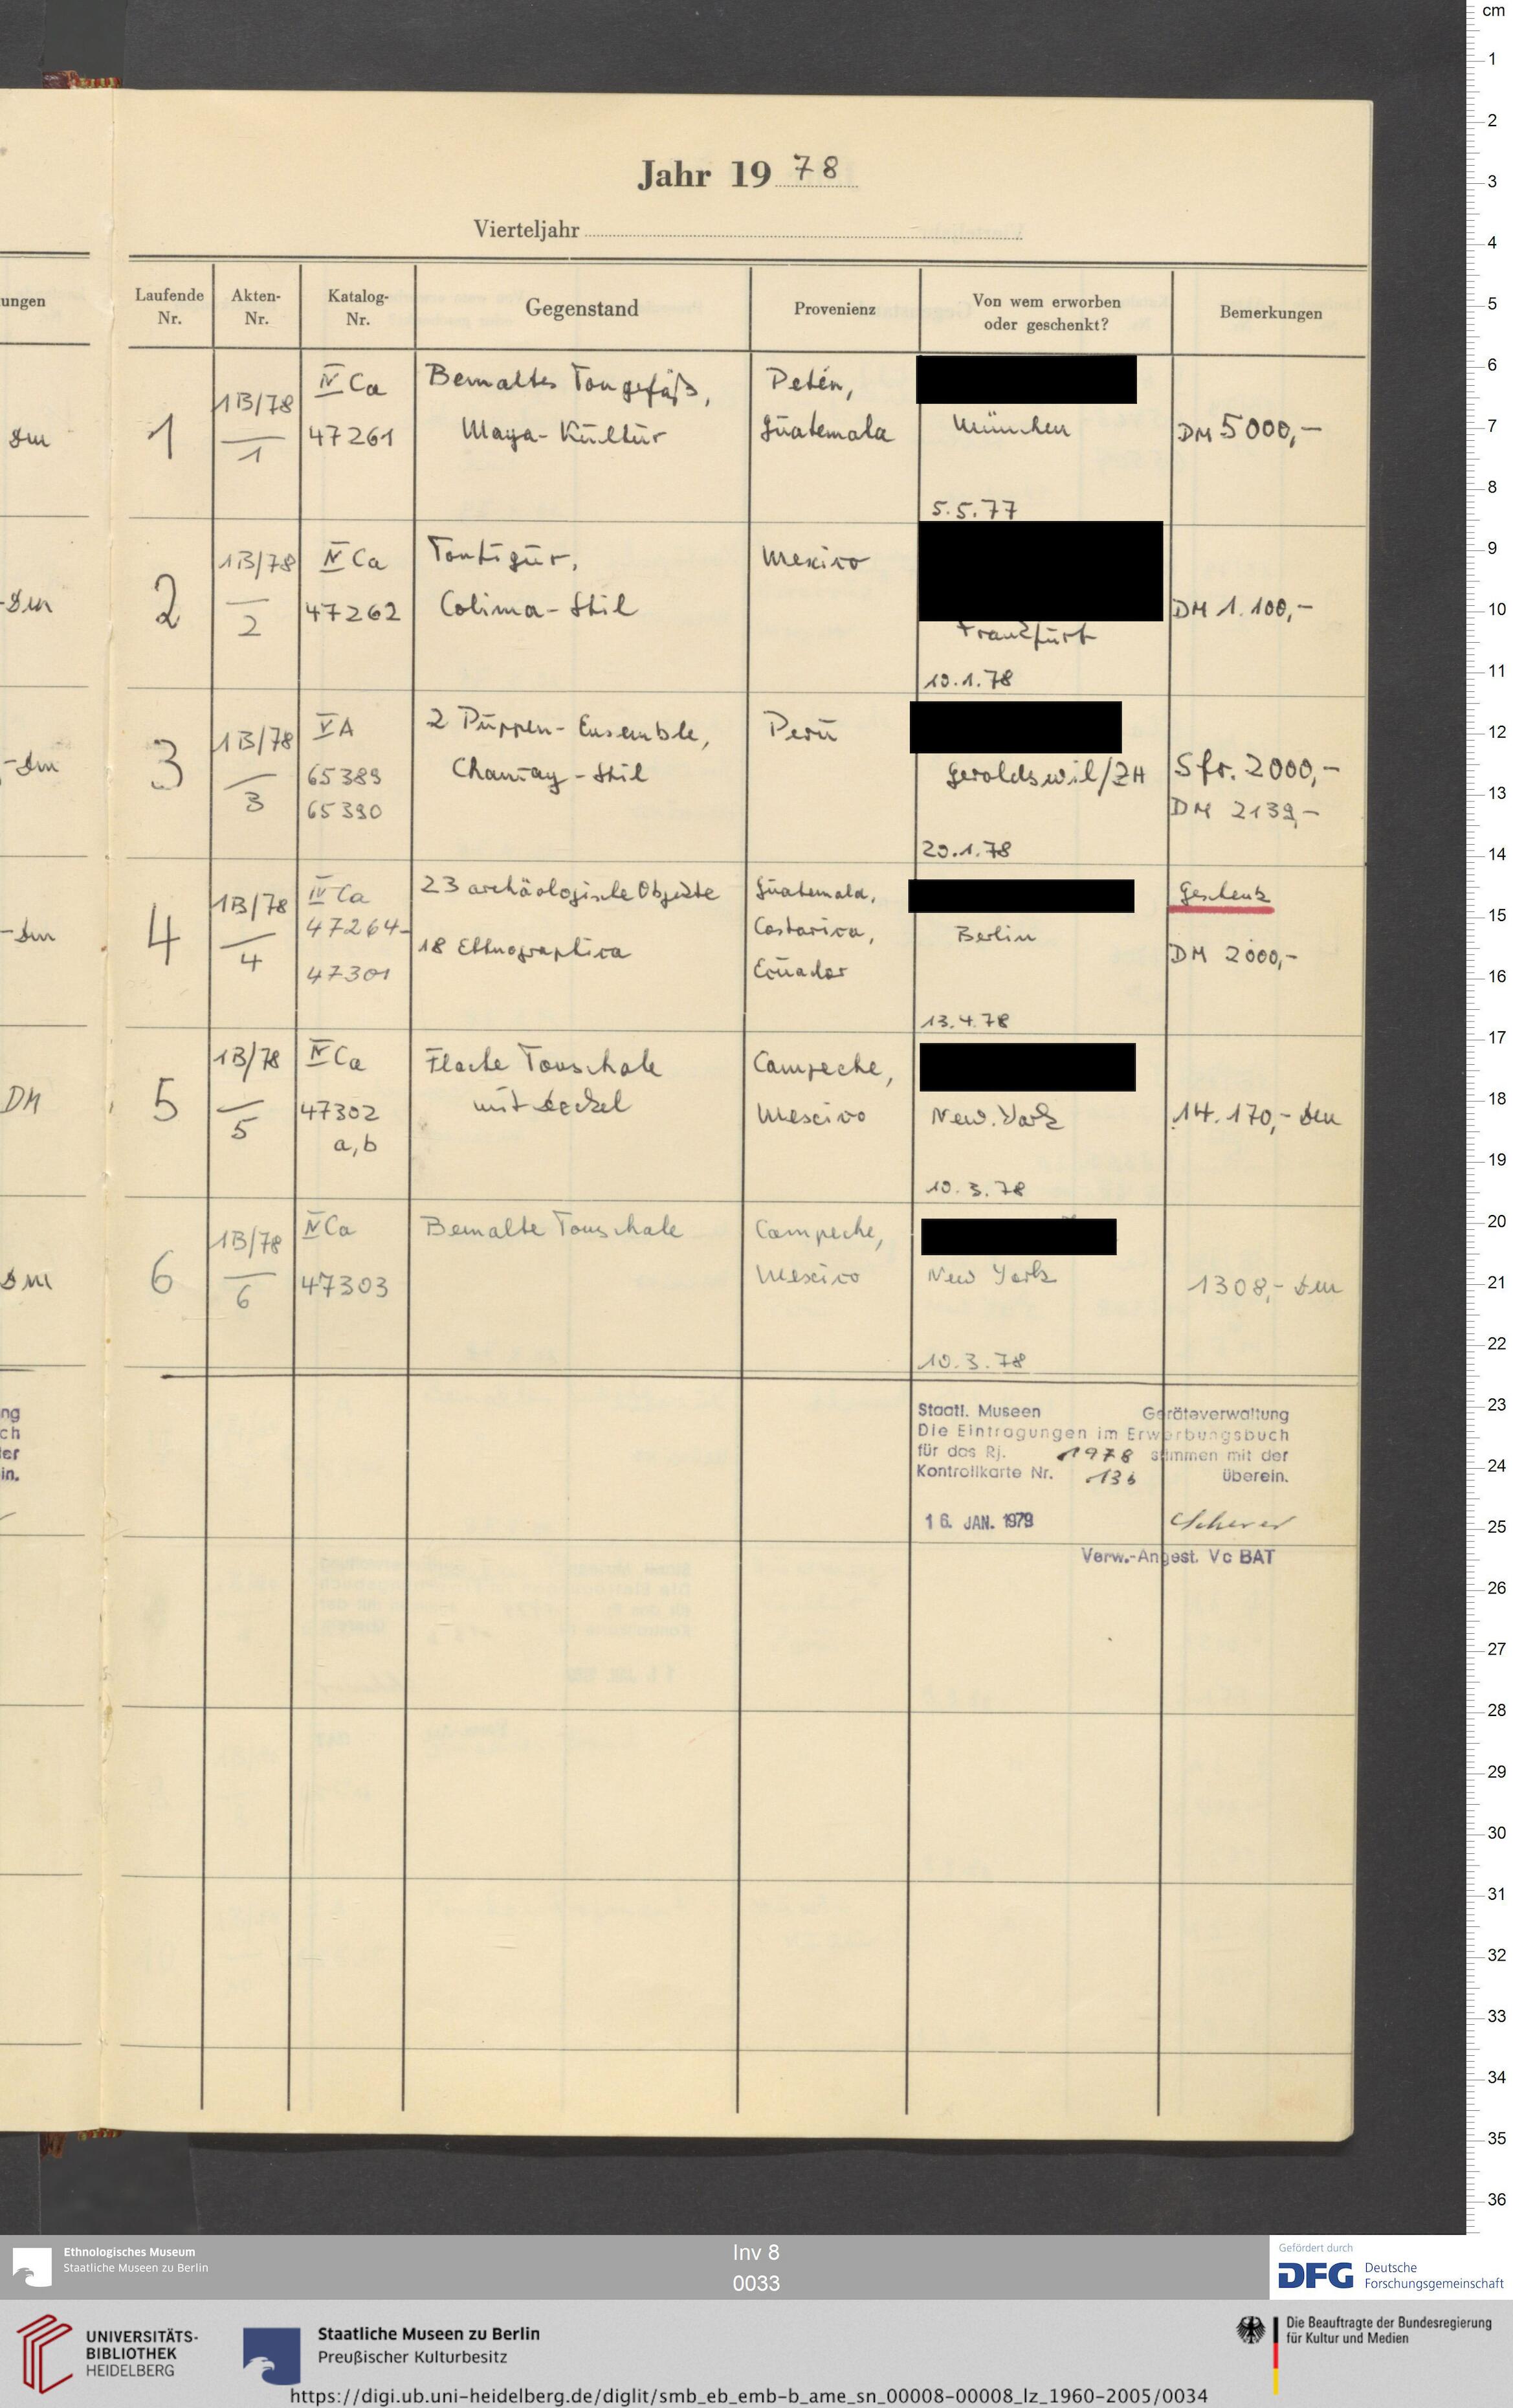 Jahr 19 78
Vierteljahr
ungen
Laufende Nr.
Akten-Nr.
Katalog-Nr.
Gegenstand
Provenienz
Von wem erworben oder geschenkt?
Bemerkungen
1 1B/78/1 IV Ca 47261 Bemaltes Tongefäß, Maya-Kultur Petén, Guatemala München 5.5.77 DM 5000,-
2 1B/78/2 IV Ca 47262 Tonfigur, Colima-Stil Mexico Frankfurt 10.1.78 DM 1.100,-
3 1B/78/3 V A 65389 65390 2 Puppen-Ensemble, Chancay-Stil Peru Geroldswil/ZH 20.1.78 Sfr. 2000,- DM 2139,-
4 1B/78/4 IV Ca 47264-47301 23 archäologische Objekte 18 Ethnographica Guatemala, Costarica, Ecuador Berlin 13.4.78 Geschenk DM 2000,-
5 1B/78/5 IV Ca 47302 a,b Flache Tonschale mit Deckel Campeche, Mexico New York 10.3.78 14.170,- Dm
6 1B/78/6 IV Ca 47303 Bemalte Tonschale Campeche, Mexico New York 10.3.78 1308,- Dm
Staatl. Museen Geräteverwaltung
Die Eintragungen im Erwerbungsbuch
für das Rj. 1978 stimmen mit der
Kontrollkarte Nr. 136 überein.
16. JAN. 1979 Scherer
Verw.-Angest. Vc BAT
Ethnologisches Museum
Staatliche Museen zu Berlin
Inv 8
0033
Gefördert durch
DFG Deutsche
Forschungsgemeinschaft
UNIVERSITÄTS-
BIBLIOTHEK
HEIDELBERG
Staatliche Museen zu Berlin
Preußischer Kulturbesitz
Die Beauftragte der Bundesregierung
für Kultur und Medien
https://digi.ub.uni-heidelberg.de/diglit/smb_eb_emb-b_ame_sn_00008-00008_lz_1960-2005/0034
cm
1
2
3
4
5
6
7
8
9
10
11
12
13
14
15
16
17
18
19
20
21
22
23
24
25
26
27
28
29
30
31
32
33
34
35
36